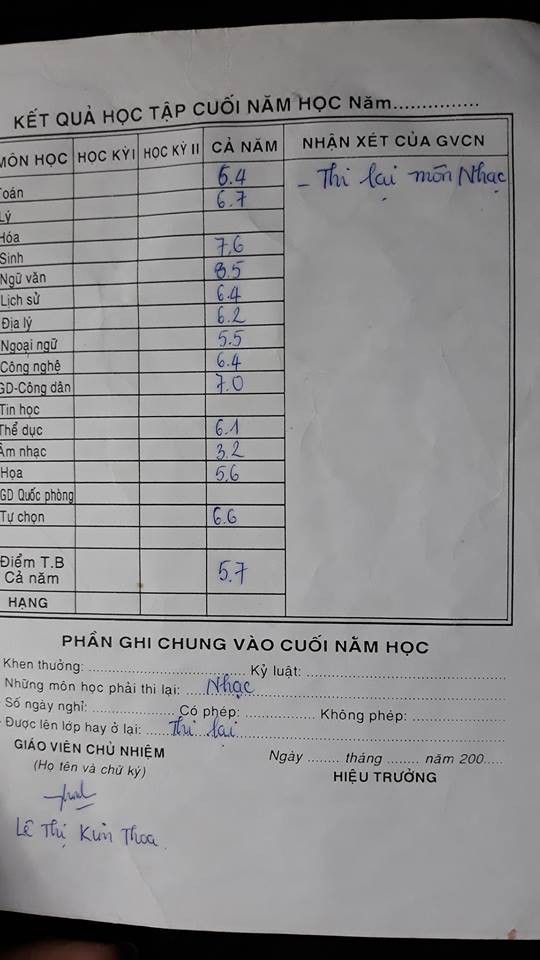 KẾT QUẢ HỌC TẬP CUỐI NĂM HỌC Năm...............
MÔN HỌC HỌC KỲ I HỌC KỲ II CẢ NĂM NHẬN XÉT CỦA GVCN
Toán 6.4 - Thi lại môn Nhạc
Lý 6.7
Hóa
Sinh 7,6
Ngữ văn 3.5
Lịch sử 6.4
Địa lý 6.2
Ngoại ngữ 5.5
Công nghệ 6.4
GD-Công dân 7.0
Tin học
Thể dục 6.1
Âm nhạc 3.2
Họa 5,6
GD Quốc phòng
Tự chọn 6.6
Điểm T.B
Cả năm 5.7
HẠNG
PHẦN GHI CHUNG VÀO CUỐI NĂM HỌC
Khen thưởng: ............................... Kỷ luật: .......................................
Những môn học phải thi lại: Nhạc
Số ngày nghỉ: ................ Có phép: .............. Không phép: ................
Được lên lớp hay ở lại: Thi lại
GIÁO VIÊN CHỦ NHIỆM
(Họ tên và chữ ký)
Ngày ........ tháng ........ năm 200.....
HIỆU TRƯỞNG
Lê Thị Kim Thoa